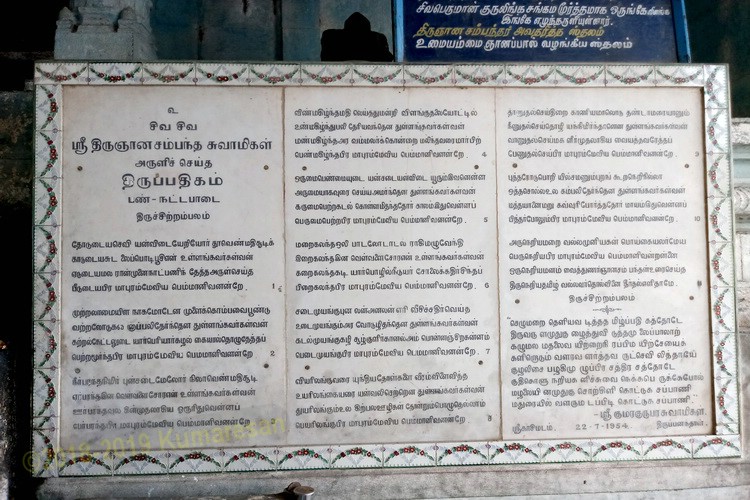 சிவபெருமான் குருலிங்க சங்கம மூர்த்தமாக ஒருங்கே
இங்கே எழுந்தருளியுள்ளார்.
திருஞான சம்பந்தர் அவதரித்த ஸ்தலம்
உமையம்மை ஞானப்பால் வழங்கிய ஸ்தலம்
உ
சிவ சிவ
ஸ்ரீ திருஞானசம்பந்த சுவாமிகள்
அருளிச் செய்த
திருப்பதிகம்
பண் - நட்டபாடை
திருச்சிற்றம்பலம்
தோடுடையசெவி யன்விடையேறியோர் தூவெண்மதிசூடிக்
காடுடையசுட லைப்பொடிபூசிஎன் உள்ளங்கவர்கள்வன்
ஏடுடையமல ரான்முனைநாட்பணிந் தேத்தஅருள்செய்த
பீடுடையபிர மாபுரம்மேவிய பெம்மானிவனன்றே. 1
முற்றலாமையிள நாகமோடேன முளைக்கொம்பவைபூண்டு
வற்றலோடுகல னாப்பலிதேர்ந்தென துள்ளங்கவர்கள்வன்
கற்றல்கேட்டலுடை யார்பெரியார்கழல் கையால்தொழுதேத்தப்
பெற்றமூர்ந்தபிர மாபுரம்மேவிய பெம்மானிவனன்றே 2
நீர்பரந்தநிமிர் புன்சடைமேலோர் நிலாவெண்மதிசூடி
ஏர்பரந்தஇன வெள்வளைசோரஎன் உள்ளங்கவர்கள்வன்
ஊர்பரந்தவுல கின்முதலாகிய ஓரூரிதுவென்னப்
பேர்பரந்தபிர மாபுரம்மேவிய பெம்மானிவனன்றே
விண்மகிழ்ந்தமதி லெய்ததுமன்றி விளங்குதலையோட்டில்
உண்மகிழ்ந்துபலி தேரியவந்தென துள்ளங்கவர்கள்வன்
மண்மகிழ்ந்தஅர வம்மலர்க்கொன்றை மலிந்தவரைமார்பிற்
பெண்மகிழ்ந்தபிர மாபுரம்மேவிய பெம்மானிவனன்றே. 4
ஒருமைபெண்மையுடை யன்சடையன்விடை யூரும்மிவனென்ன
அருமையாகவுரை செய்யஅமர்ந்தென துள்ளங்கவர்கள்வன்
கருமைபெற்றகடல் கொள்ளமிதந்ததோர் காலம்இதுவென்னப்
பெருமைபெற்றபிர மாபுரம்மேவிய பெம்மானிவனன்றே. 5
மறைகலந்தஒலி பாடலோடாடல ராகிமழுவேந்தி
இறைகலந்தஇன வெள்வளைசோரஎன் உள்ளங்கவர்கள்வன்
கறைகலந்தகடி யார்பொழில்நீடுயர் சோலைக்கதிர்சிந்தப்
பிறைகலந்தபிர மாபுரம்மேவிய பெம்மானிவனன்றே. 6
சடைமுயங்குபுன லன்அனலன்எரி வீசிச்சதிர்வெய்த
உடைமுயங்கும்அர வோடுழிதந்தென துள்ளங்கவர்கள்வன்
கடல்முயங்குகழி சூழ்குளிர்கானல்அம் பொன்னஞ்சிறகன்னம்
பெடைமுயங்குபிர மாபுரம்மேவிய பெம்மானிவனன்றே. 7
வியரிலங்குவரை யுந்தியதோள்களை வீரம்விளைவித்த
உயரிலங்கைஅரை யன்வலிசெற்றென துள்ளங்கவர்கள்வன்
துயரிலங்கும்உல கிற்பலவூழிகள் தோன்றும்பொழுதெல்லாம்
பெயரிலங்குபிர மாபுரம்மேவிய பெம்மானிவனன்றே. 8
தாணுதல்செய்திறை காணியமாலொடு தண்டாமரையானும்
நீணுதல்செய்தொழி யந்நிமிர்ந்தானென துள்ளங்கவர்கள்வன்
வாணுதல்செய்மக ளீர்முதலாகிய வையத்தவரேத்தப்
பேணுதல்செய்பிர மாபுரம்மேவிய பெம்மானிவனன்றே. 9
புத்தரோடுபொறி யில்சமணும்புறங் கூறநெறிநில்லா
ஒத்தசொல்லஉல கம்பலிதேர்ந்தென துள்ளங்கவர்கள்வன்
மத்தயானைமறு கவ்வுரிபோர்த்ததோர் மாயம்இதுவென்னப்
பித்தர்போலும்பிர மாபுரம்மேவிய பெம்மானிவனன்றே. 10
அருநெறியமறை வல்லமுனியகன் பொய்கையலர்மேய
பெருநெறியபிர மாபுரம்மேவிய பெம்மானிவன்றன்னை
ஒருநெறியமனம் வைத்துணர்ஞானசம் பந்தன்உரைசெய்த
திருநெறியதமிழ் வல்லவர்தொல்வினை தீர்தல்எளிதாமே.
திருச்சிற்றம்பலம்
செழுமறை தெளியவ டித்தத மிழ்ப்பதி கத்தோடே
திருவரு ளமுதகு ழைத்துவி டுத்தமு லைப்பாலாற்
கழுமல மதலைவ யிற்றைநி ரப்பிம யிற்சேயைக்
களிறொடும் வளரவ ளர்த்தவ ருட்செவி லித்தாயே
குழலிசை பழகிமு ழுப்பிர சத்திர சத்தோடே
குதிகொளு நறியக னிச்சுவை நெக்கபெ ருக்கேபோல்
மழலையி னமுதுகு சொற்கிளி கொட்டுக சப்பாணி
மதுரையில் வளரும டப்பிடி கொட்டுக சப்பாணி
- ஸ்ரீ குமரகுருபரசுவாமிகள்.
ஸ்ரீகாசிமடம். 22-7-1954. திருப்பனந்தாள்
©2018-2019 Kumaresan